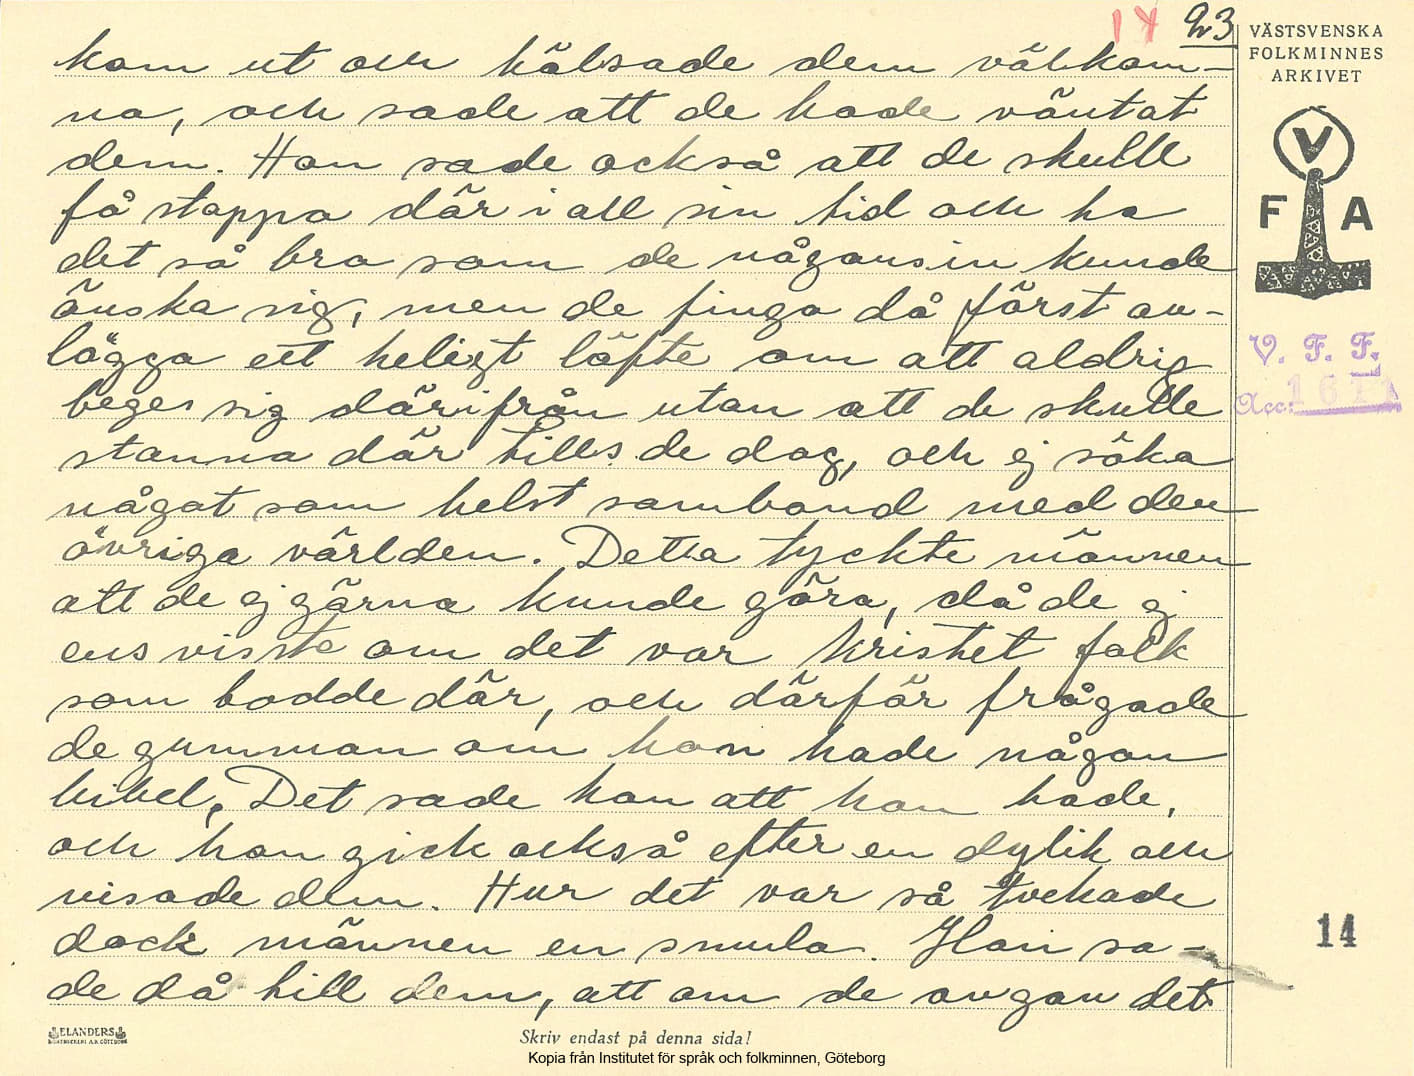 14 23
VÄSTSVENSKA
FOLKMINNES
ARKIVET
V
F A
V. F. F.
Acc: 1611
kom ut och hälsade dem välkom-
na, och sade att de hade väntat
dem. Hon sade också att de skulle
få stoppa där i all sin tid och ha
det så bra som de någonsin kunde
önska sig, men de finga då först av-
lägga ett heligt löfte om att aldrig
beges sig därifrån utan att de skulle
stanna där tills de dog, och ej söka
något som helst samband med den
övriga världen. Detta tyckte männen
att de ej gärna kunde göra, då de ej
ens visste om det var kristet folk
som bodde där, och därför frågade
de gumman om hon hade någon
bibel. Det sade hon att hon hade,
och hon gick också efter en dylik och
visade dem. Hur det var så tvekade
dock männen en smula. Hon sa-
de då till dem, att om de avgav det
14
ELANDERS
Skriv endast på denna sida!
Kopia från Institutet för språk och folkminnen, Göteborg